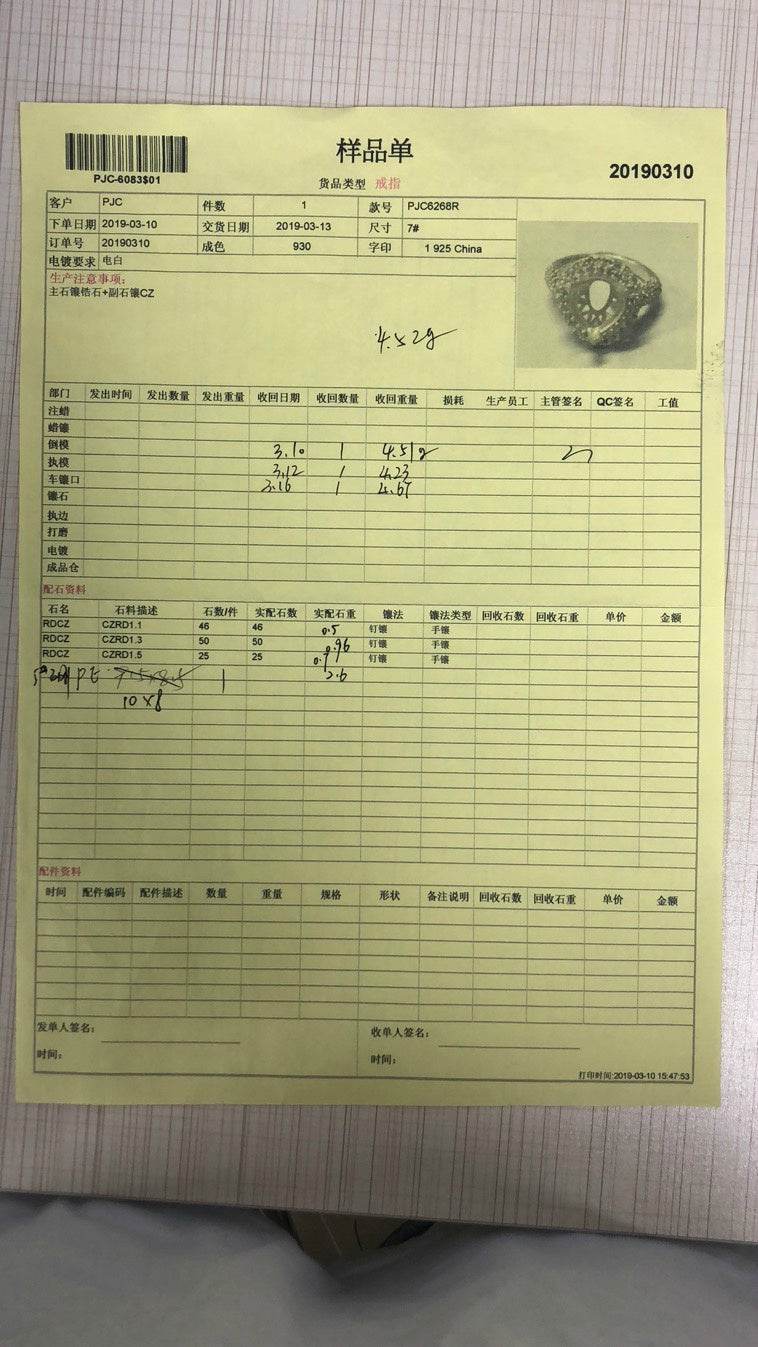 样品单
PJC-6083$01
货品类型 戒指
20190310
客户 PJC 件数 1 款号 PJC6268R
下单日期 2019-03-10 交货日期 2019-03-13 尺寸 7#
订单号 20190310 成色 930 字印 1 925 China
电镀要求 电白
生产注意事项:
主石镶锆石+副石镶CZ
4.52g
部门 发出时间 发出数量 发出重量 收回日期 收回数量 收回重量 损耗 生产员工 主管签名 QC签名 工值
注蜡
蜡镶
倒模 3.10 1 4.51g
执模 3.12 1 4.23
车镶口 3.16 1
镶石
执边
打磨
电镀
成品仓
配石资料
石名 石料描述 石数/件 实配石数 实配石重 镶法 镶法类型 回收石数 回收石重 单价 金额
RDCZ CZRD1.1 46 46 0.5 钉镶 手镶
RDCZ CZRD1.3 50 50 0.96 钉镶 手镶
RDCZ CZRD1.5 25 25 钉镶 手镶
PE 7.5x8.5 1 2.6
10x8
配件资料
时间 配件编码 配件描述 数量 重量 规格 形状 备注说明 回收石数 回收石重 单价 金额
发单人签名: 收单人签名:
时间: 时间:
打印时间:2019-03-10 15:47:53